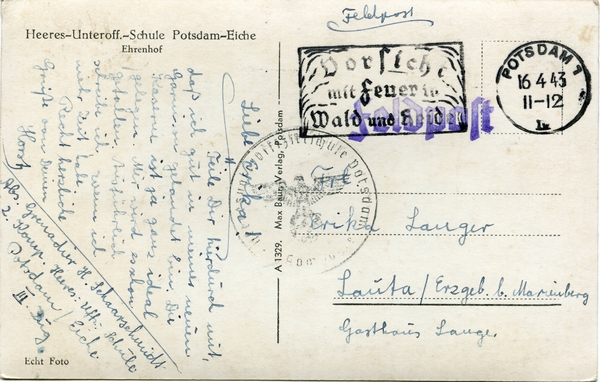 Heeres-Unteroff.-Schule Potsdam-Eiche
Ehrenhof
Liebe Erika!
Teile Dir hierdurch mit,
daß ich gut in meiner neuen
Garnison gelandet bin. Die
Kaserne ist ja ganz ideal
gelegen. Mir wird es schon
gefallen. Ausführlich
schreibe ich wenn ich
mehr Zeit habe.
Recht herzliche
Grüße von Deinem
Horst
Abs. Grenadier H. Schaarschmidt
2. Komp. Heeres-Uffz. Schule
Potsdam/Eiche
III. Zug
Echt Foto
A 1329. Max Baur, Verlag, Potsdam
Feldpost
Vorsicht
mit Feuer in
Wald und Heide
POTSDAM 1
16.4.43
11-12
Feldpost
Frl.
Erika Langer
Lauta / Erzgeb. b. Marienberg
Gasthaus Langer